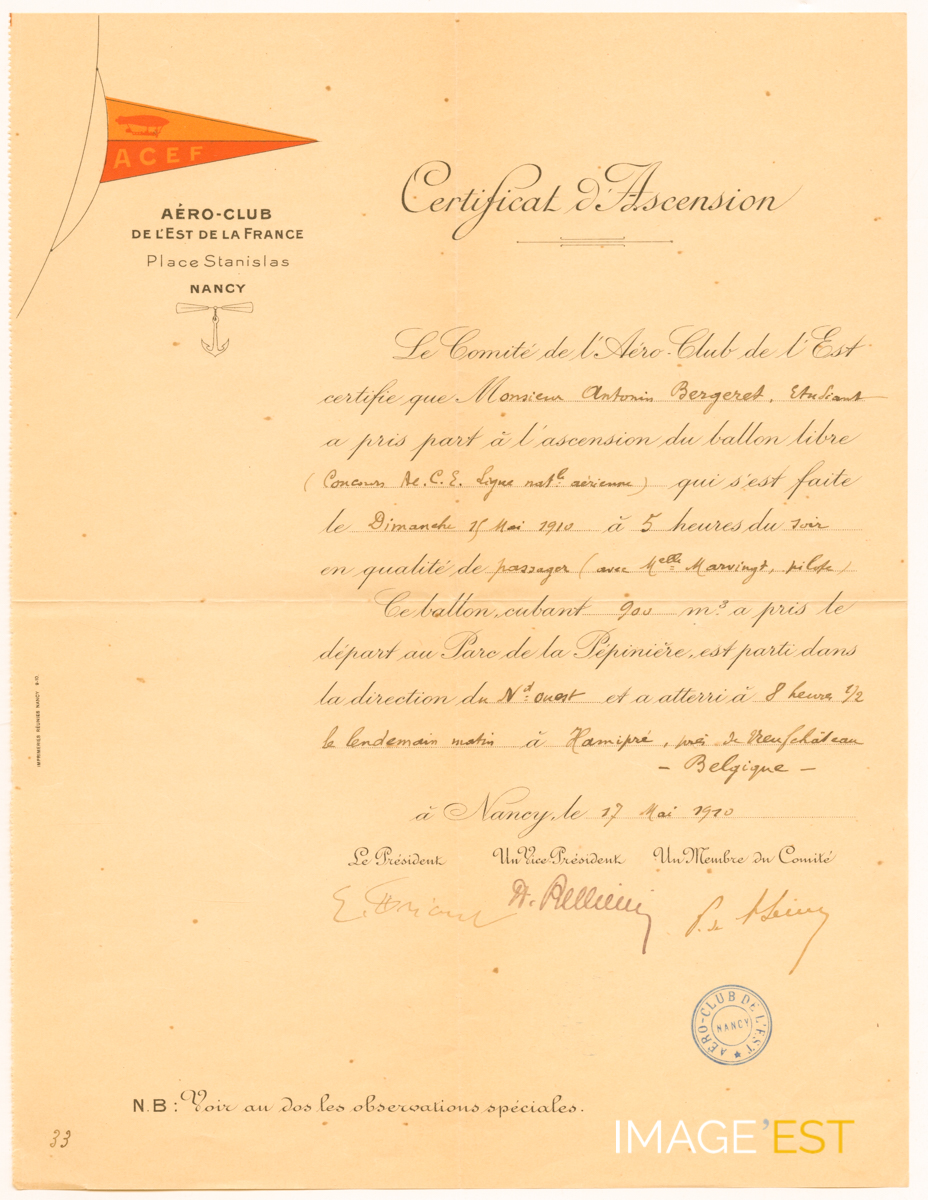 ACEF
AÉRO-CLUB
DE L'EST DE LA FRANCE
Place Stanislas
NANCY
Certificat d'Ascension
Le Comité de l'Aéro-Club de l'Est
certifie que Monsieur Antonin Bergeret, Etudiant
a pris part à l'ascension du ballon libre
(Concours Ae.C.E. Ligue natle aérienne) qui s'est faite
le Dimanche 15 Mai 1910 à 5 heures du soir
en qualité de passager (avec Melle Marvingt, pilote)
Ce ballon, cubant 900 m³ a pris le
départ au Parc de la Pépinière, est parti dans
la direction du Nd-ouest et a atterri à 8 heures 1/2
le lendemain matin à Hamipré, près de Neufchâteau
- Belgique -
à Nancy, le 17 Mai 1910
Le Président Un Vice Président Un Membre du Comité
AÉRO-CLUB DE L'EST
NANCY
IMPRIMERIES RÉUNIES NANCY
N.B: Voir au dos les observations spéciales.
33
IMAGE'EST